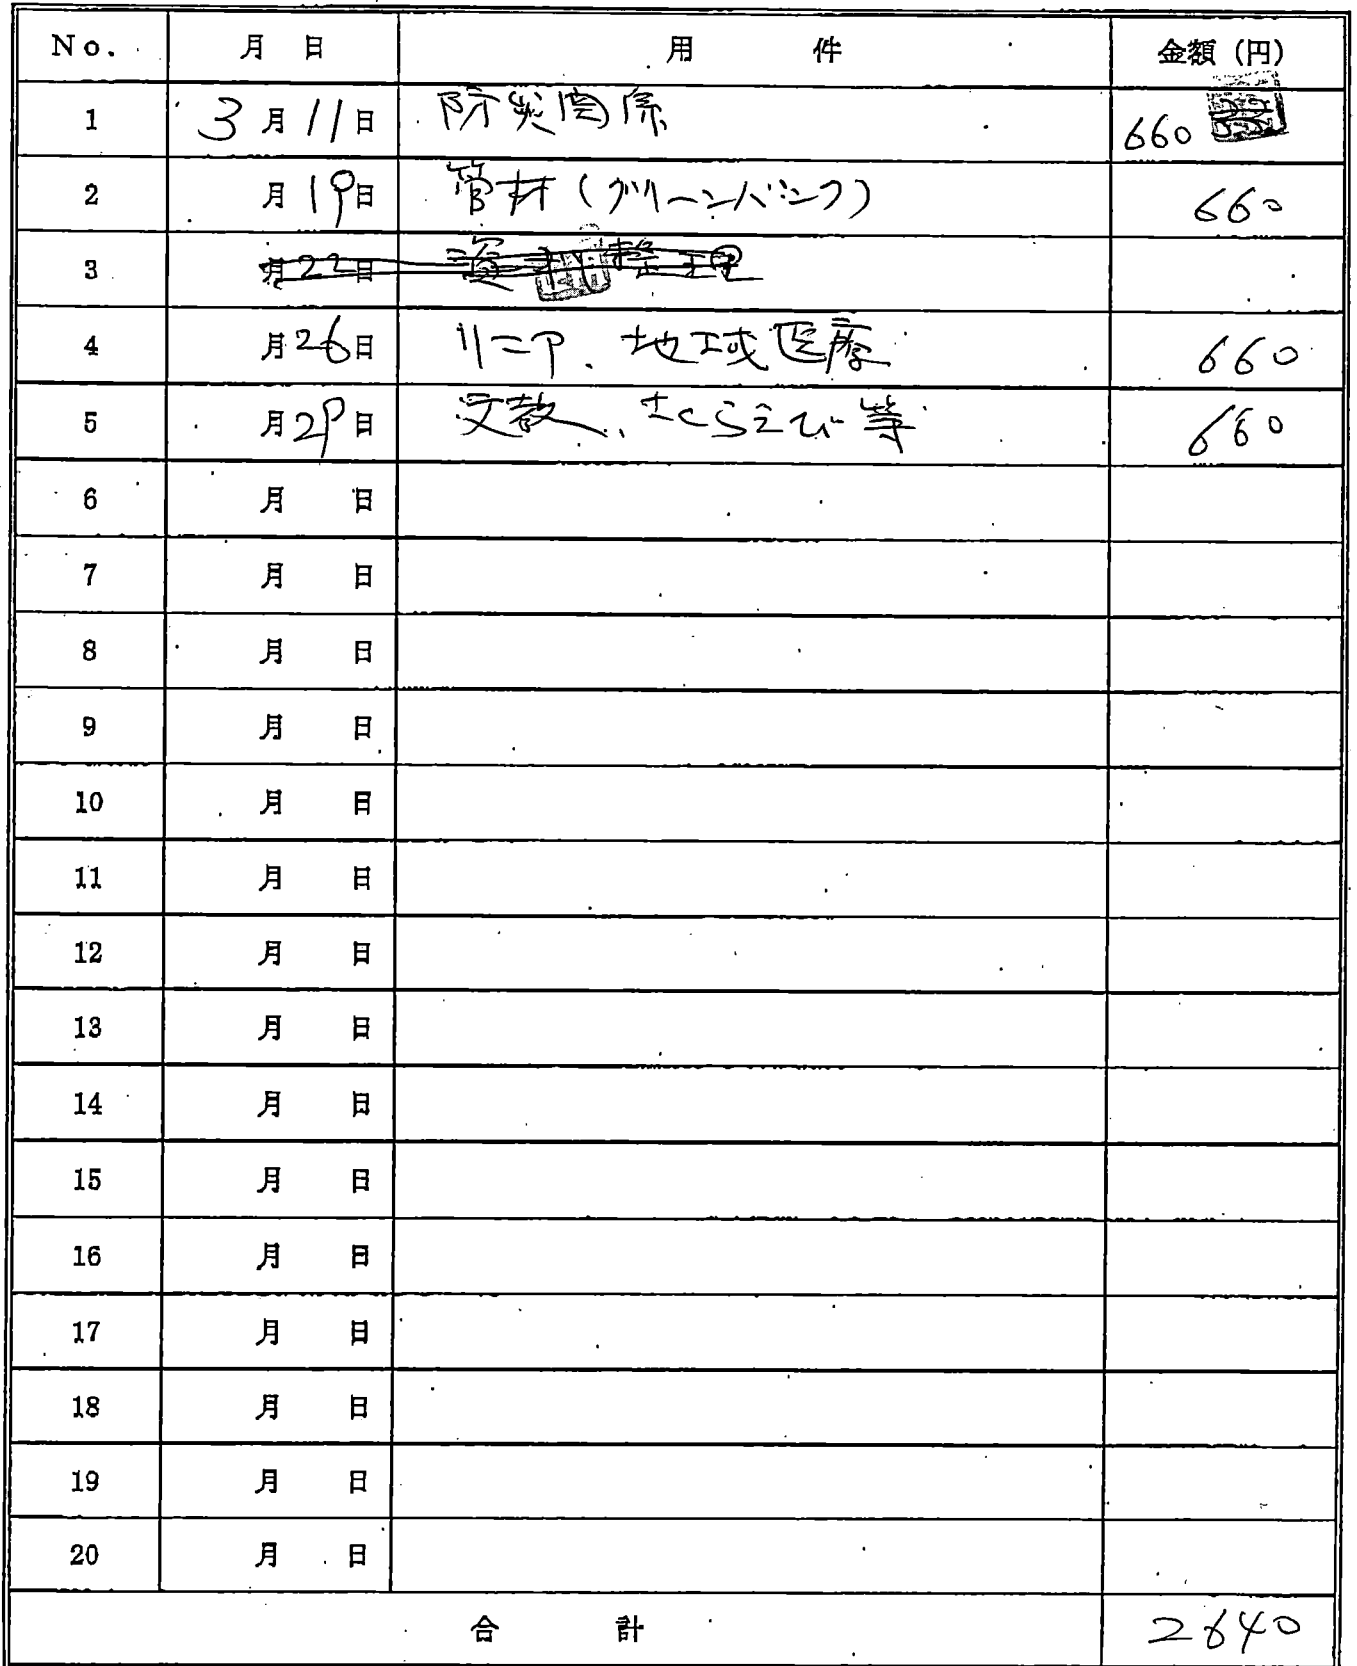 No. 月 日 用 件 金額 (円)
1 3月11日 防災関係 660
2 月19日 管材(グリーンバンク) 660
3 月22日 資料整理
4 月26日 リニア、地域医療 660
5 月29日 文教、さくらえび等 660
6 月 日
7 月 日
8 月 日
9 月 日
10 月 日
11 月 日
12 月 日
13 月 日
14 月 日
15 月 日
16 月 日
17 月 日
18 月 日
19 月 日
20 月 日
合 計 2640